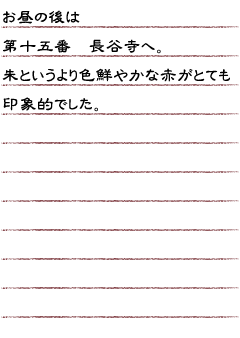 お昼の後は
第十五番　長谷寺へ。
朱というより色鮮やかな赤がとても
印象的でした。